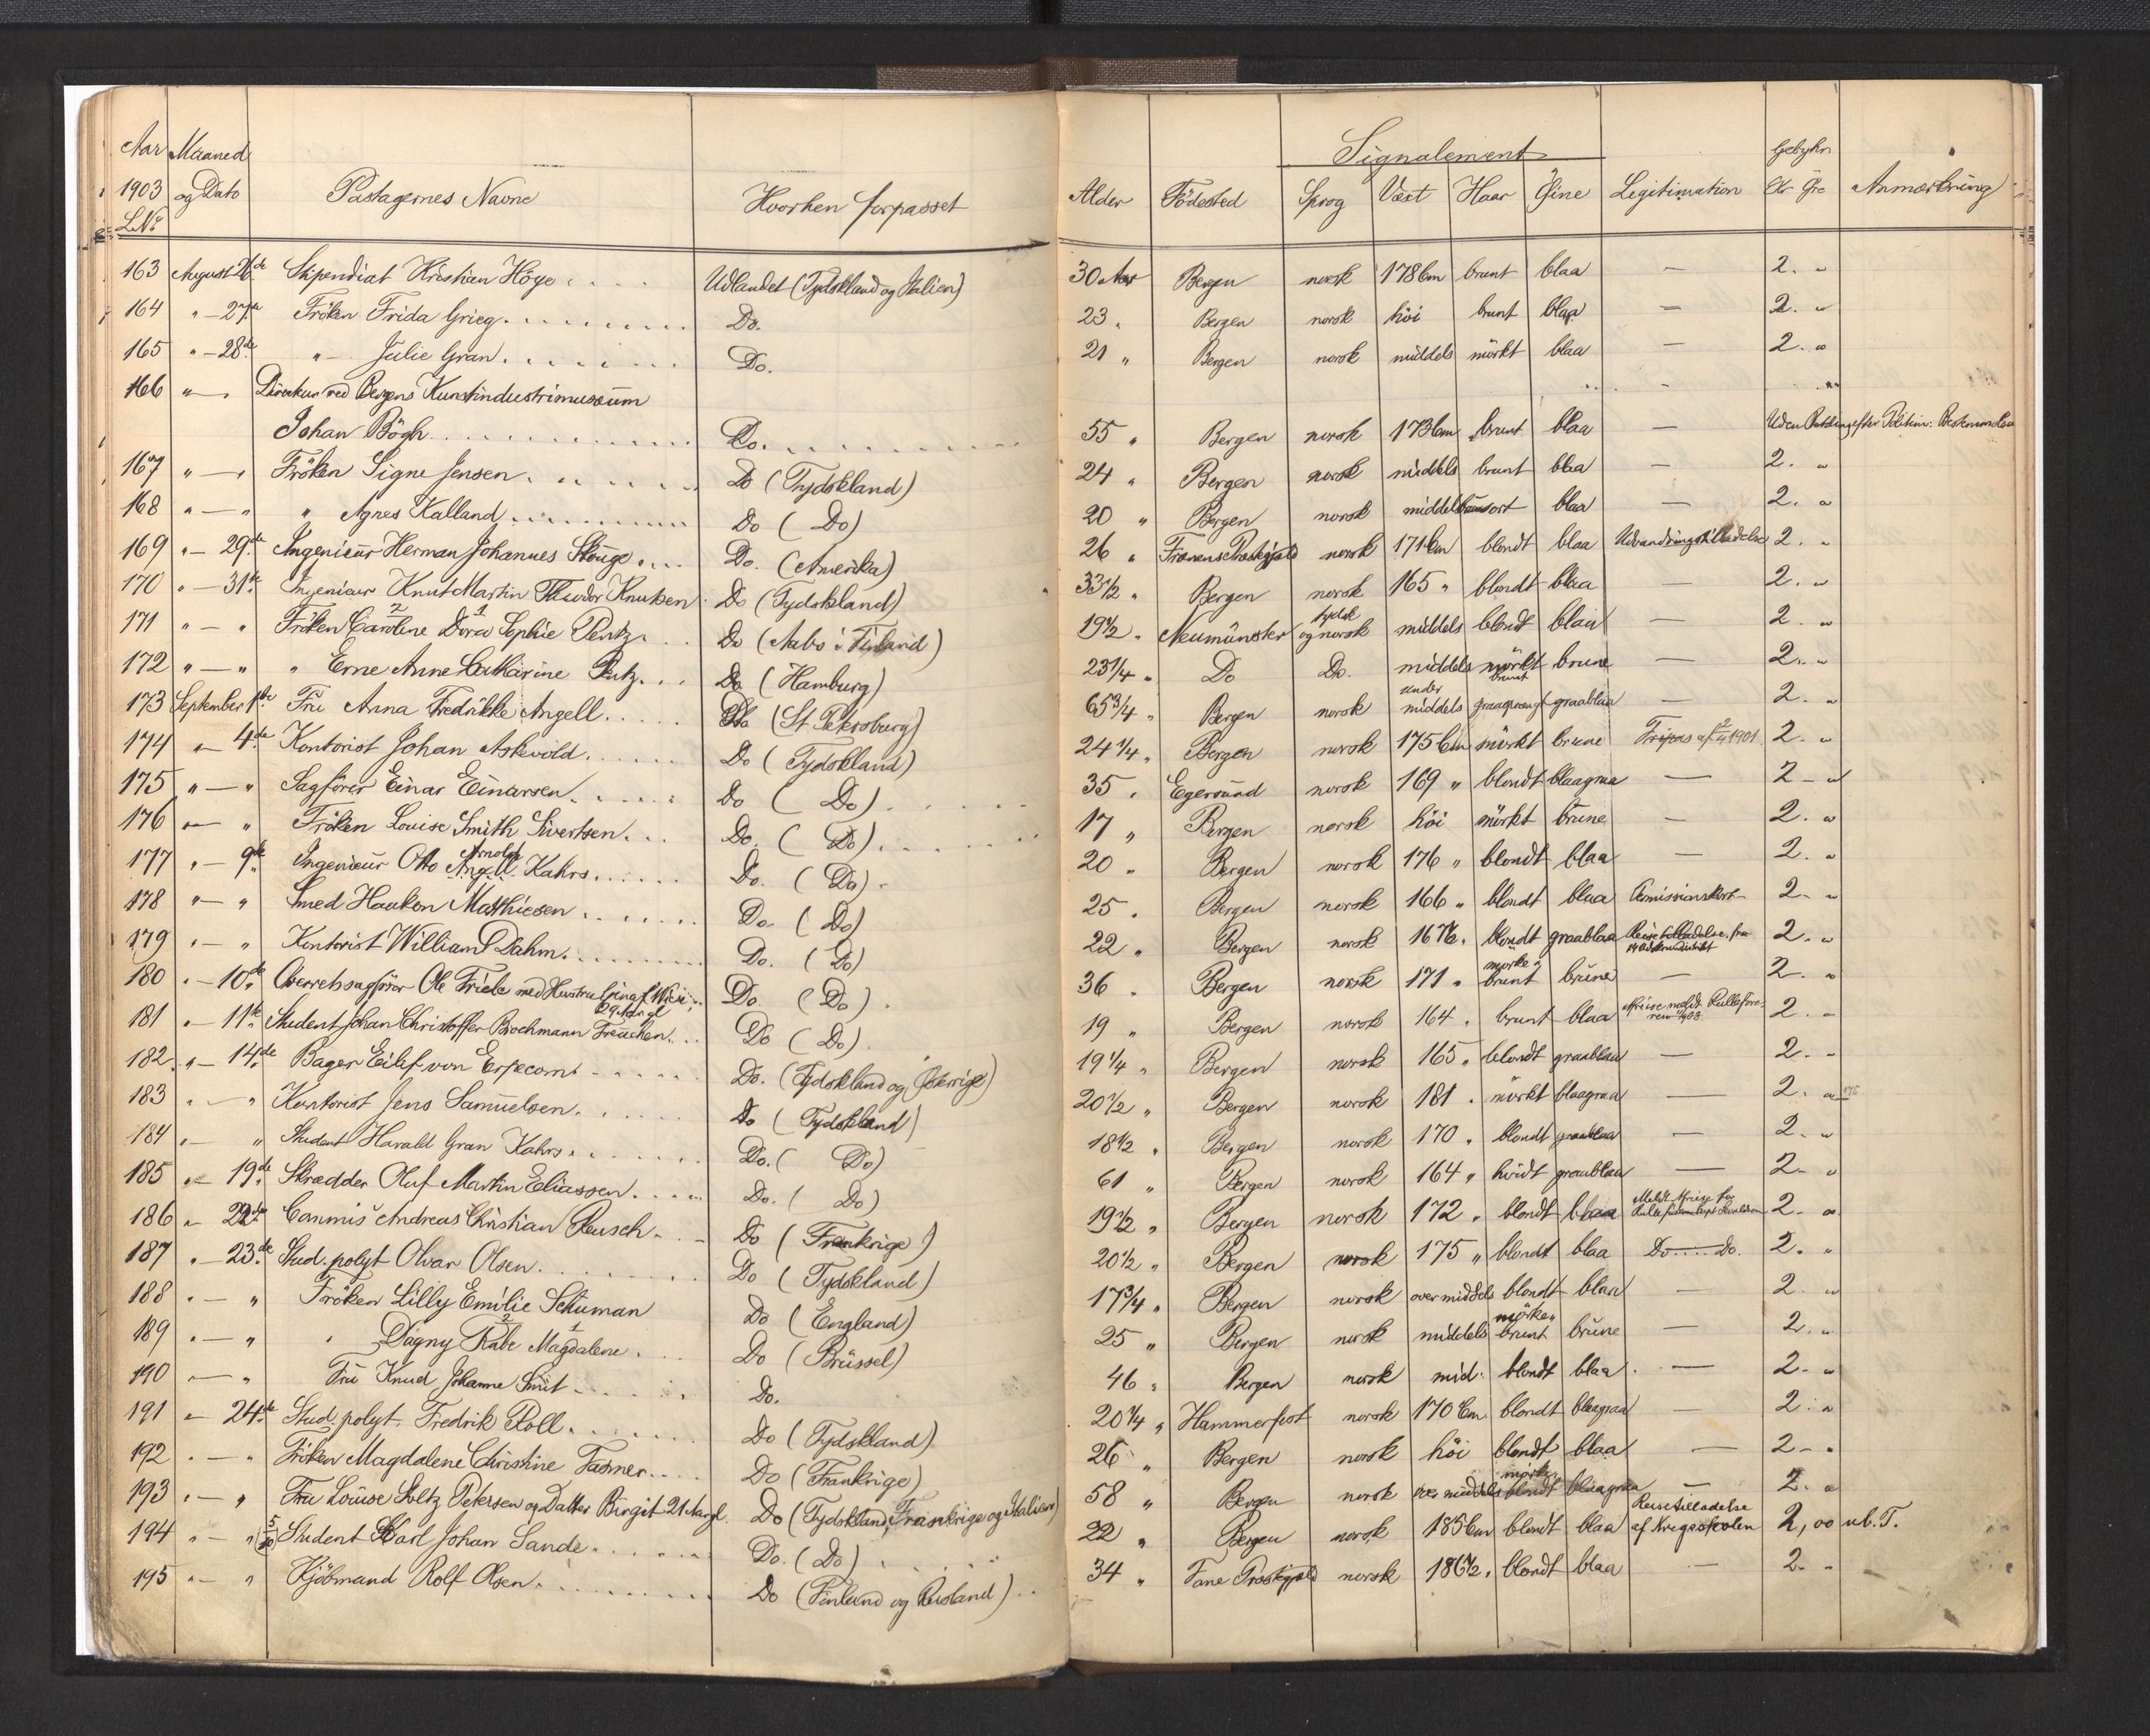 Aar Maaned Signalement Gebyhr
1903 og Dato Passagernes Navne Hvorhen forpasset Alder Födested Sprog Vext Haar Öine Legitimation Kr Öre Anmærkning
L.No
163 August 26de Stipendiat Kristian Höge Udlandet (Tydskland og Italien) 30 Aar Bergen norsk 178 Cm brunt blaa — 2. "
164 " — 27de Fröken Frida Grieg Do. 23 " Bergen norsk höi brunt blaa — 2. "
165 " — 28de " — Julie Gran Do. 21 " Bergen norsk middels mörkt blaa — 2. "
166 " — " Direktør ved Bergens Kunstindustrimusæum
Johan Bögh Do. 55 " Bergen norsk 173 Cm brunt blaa — Uden Betaling efter Politim. Bestemmelse
167 " — " Fröken Signe Jensen Do (Tydskland) 24 " Bergen norsk middels brunt blaa — 2. "
168 " — " " Agnes Kalland Do (Do) 20 " Bergen norsk middels brunsort blaa — 2. "
169 " — 29de Ingenieur Herman Johannes Skouge Do. (Amerika) 26 " norsk 171 Cm blondt blaa Udvandringstilladelse 2. "
170 " — 31te Ingenieur Knut Martin Theodor Knutsen Do (Tydskland) 33 1/2 " Bergen norsk 165 " blondt blaa — 2. "
171 " — " Fröken Caroline 2 Dora 1 Sophie Pentz Do (Aabo i Finland) 19 1/2 " Neumünster tydsk og norsk middels blondt blaa — 2. "
172 " — " " Erne Anne Cathárine Pentz Do (Hamburg) 23 1/4 " Do Do. middels mörkt brunt brune — 2. "
173 September 1ste Fru Anna Fredrikke Angell Do (St. Petersburg) 65 3/4 " Bergen norsk under middels graasprængt graablaa — 2. "
174 " — 4de Kontorist Johan Askevold Do (Tydskland) 24 1/4 " Bergen norsk 175 Cm mörkt brune Fripas af 2/4 1901 2. "
175 " — " Sagförer Einar Einarsen Do (Do) 35 " Egersund norsk 169 " blondt blaagraa — 2 — "
176 " — " Fröken Louise Smith Sivertsen Do. (Do) 17 " Bergen norsk höi mörkt brune — 2. "
177 " — 9de Ingenieur Otto Angell Arnold Kahrs Do. (Do) 20 " Bergen norsk 176 " blondt blaa — 2. "
178 " — " Smed Haakon Matthiesen Do (Do) 25 " Bergen norsk 166 " blondt blaa 2. "
179 " — " Kontorist William Dahm Do. (Do) 22 " Bergen norsk 167 1/2 " blondt graablaa Reisetilladelse fra 2. "
180 " — 10de Overretssagförer Ole Friele med Hustru Do. (Do) 36 " Bergen norsk 171 " mörke brunt brune — 2. "
181 " — 11te Student Johan Christoffer Brochmann Freuchen Do (Do) 19 " Bergen norsk 164 " brunt blaa 2. "
182 " — 14de Bager Eilef von Erpecom Do. (Tydskland og Österrige) 19 1/4 " Bergen norsk 165 " blondt graablaa — 2. "
183 " — " Kontorist Jens Samuelsen Do (Tydskland) 20 1/2 " Bergen norsk 181 " mörkt blaagraa — 2. "
184 " — " Student Harald Gran Kahrs Do. (Do) 18 1/2 " Bergen norsk 170 " blondt graablaa — 2. "
185 " — 19de Skrædder Oluf Martin Eliassen Do. (Do) 61 " Bergen norsk 164 " hvidt graablaa — 2. "
186 " — 22de Commis Andreas Christian Reusch Do (Frankrige) 19 1/2 " Bergen norsk 172 " blondt blaa 2. "
187 " — 23de Stud. polyt Olvar Olsen Do (Tydskland) 20 1/2 " Bergen norsk 175 " blondt blaa Do — Do. 2. "
188 " — " Fröken Lilly Emilie Schuman Do (England) 17 3/4 " Bergen norsk over middels blondt blaa — 2. "
189 " — " " Dagny Rabe 2 Magdalene 1 Do (Brüssel) 25 " Bergen norsk middels mörke brunt brune — 2. "
190 " — " Fru Knud Johanne Smit Do. 46 " Bergen norsk mid. blondt blaa — 2. "
191 " — 24de Stud. polyt. Fredrik Roll Do (Tydskland) 20 1/4 " Hammerfest norsk 170 Cm blondt blaagraa — 2. "
192 " — " Fröken Magdalene Christine Fasmer Do (Frankrige) 26 " Bergen norsk höi blondt blaa — 2 — "
193 " — " Fru Louise Stoltz Petersen og Datter Birgit 21 Aar gl. Do (Tydskland, Frankrige og Italien) 58 " Bergen norsk over middels mörke blondt blaagraa — 2. "
194 " — " 5/10 Student Carl Johan Sande Do. (Do) 22 " Bergen norsk 185 Cm blondt blaa Reisetilladelse af Krigsskolen 2,00 ub. T.
195 " — " Kjöbmand Rolf Olsen Do (Finland og Rusland) 34 " Fane Præstegjeld norsk 186 1/2 " blondt blaa — 2. "